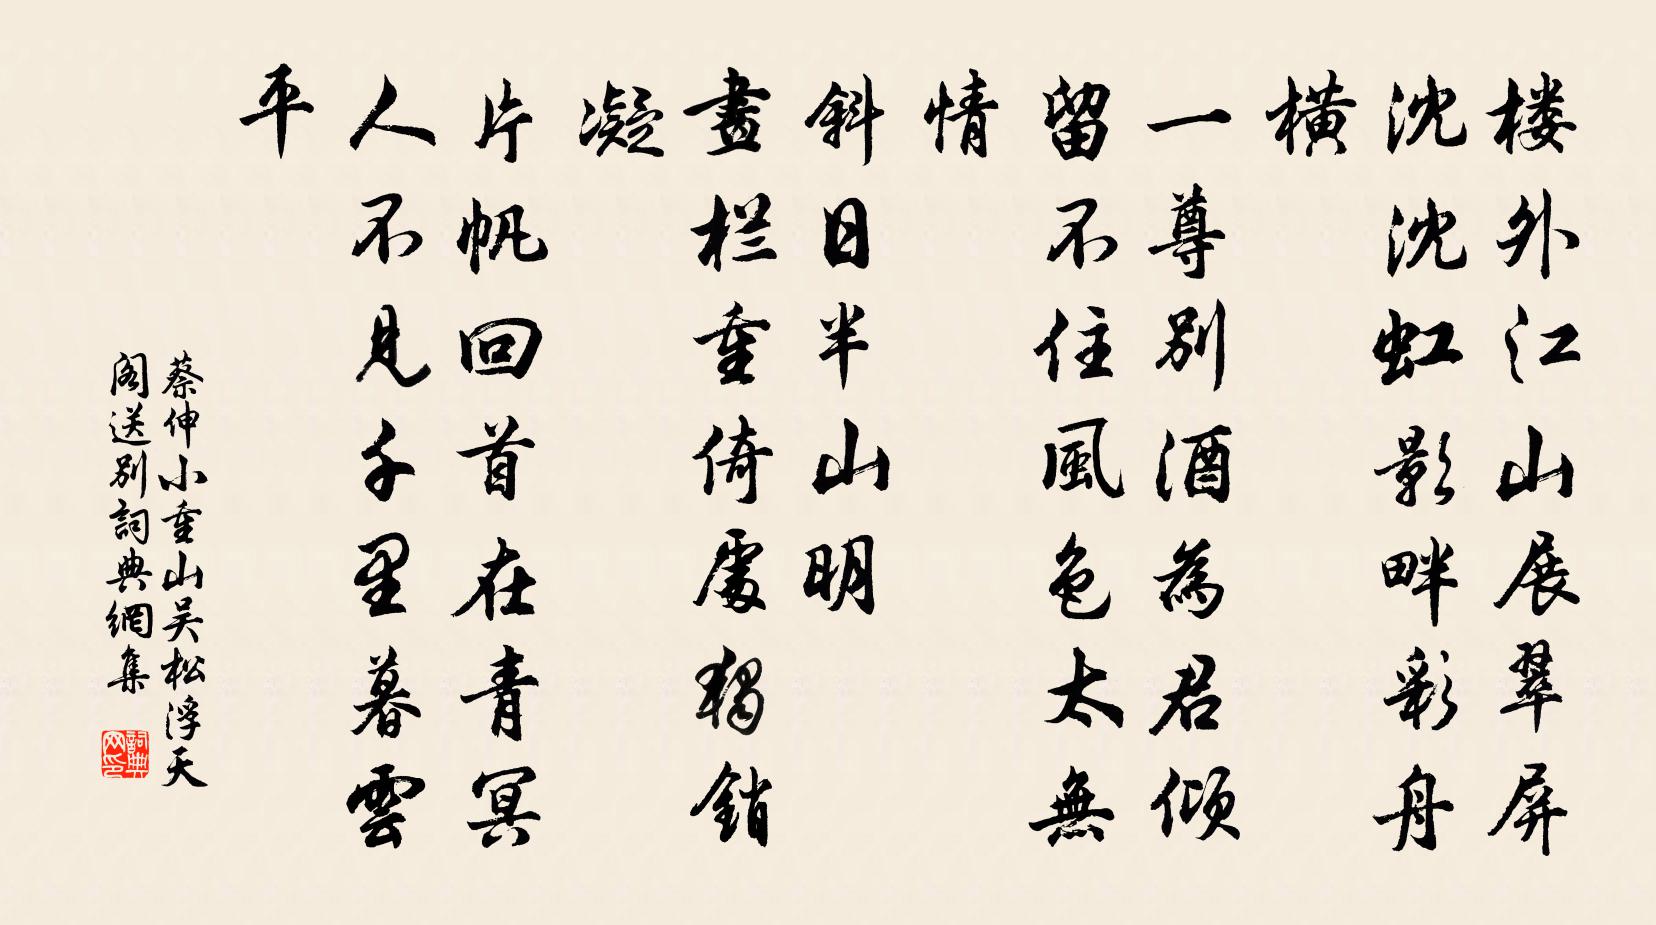 楼外江山展翠屏
沈沈虹影畔彩舟
横
一尊别酒為君倾
留不住風色太無
情
斜日半山明
畫栏重倚處独銷
凝
片帆回首在青冥
人不見千里暮雲
平
蔡伸小重山吴松浮天
阁送别詞典網集
詞典网印